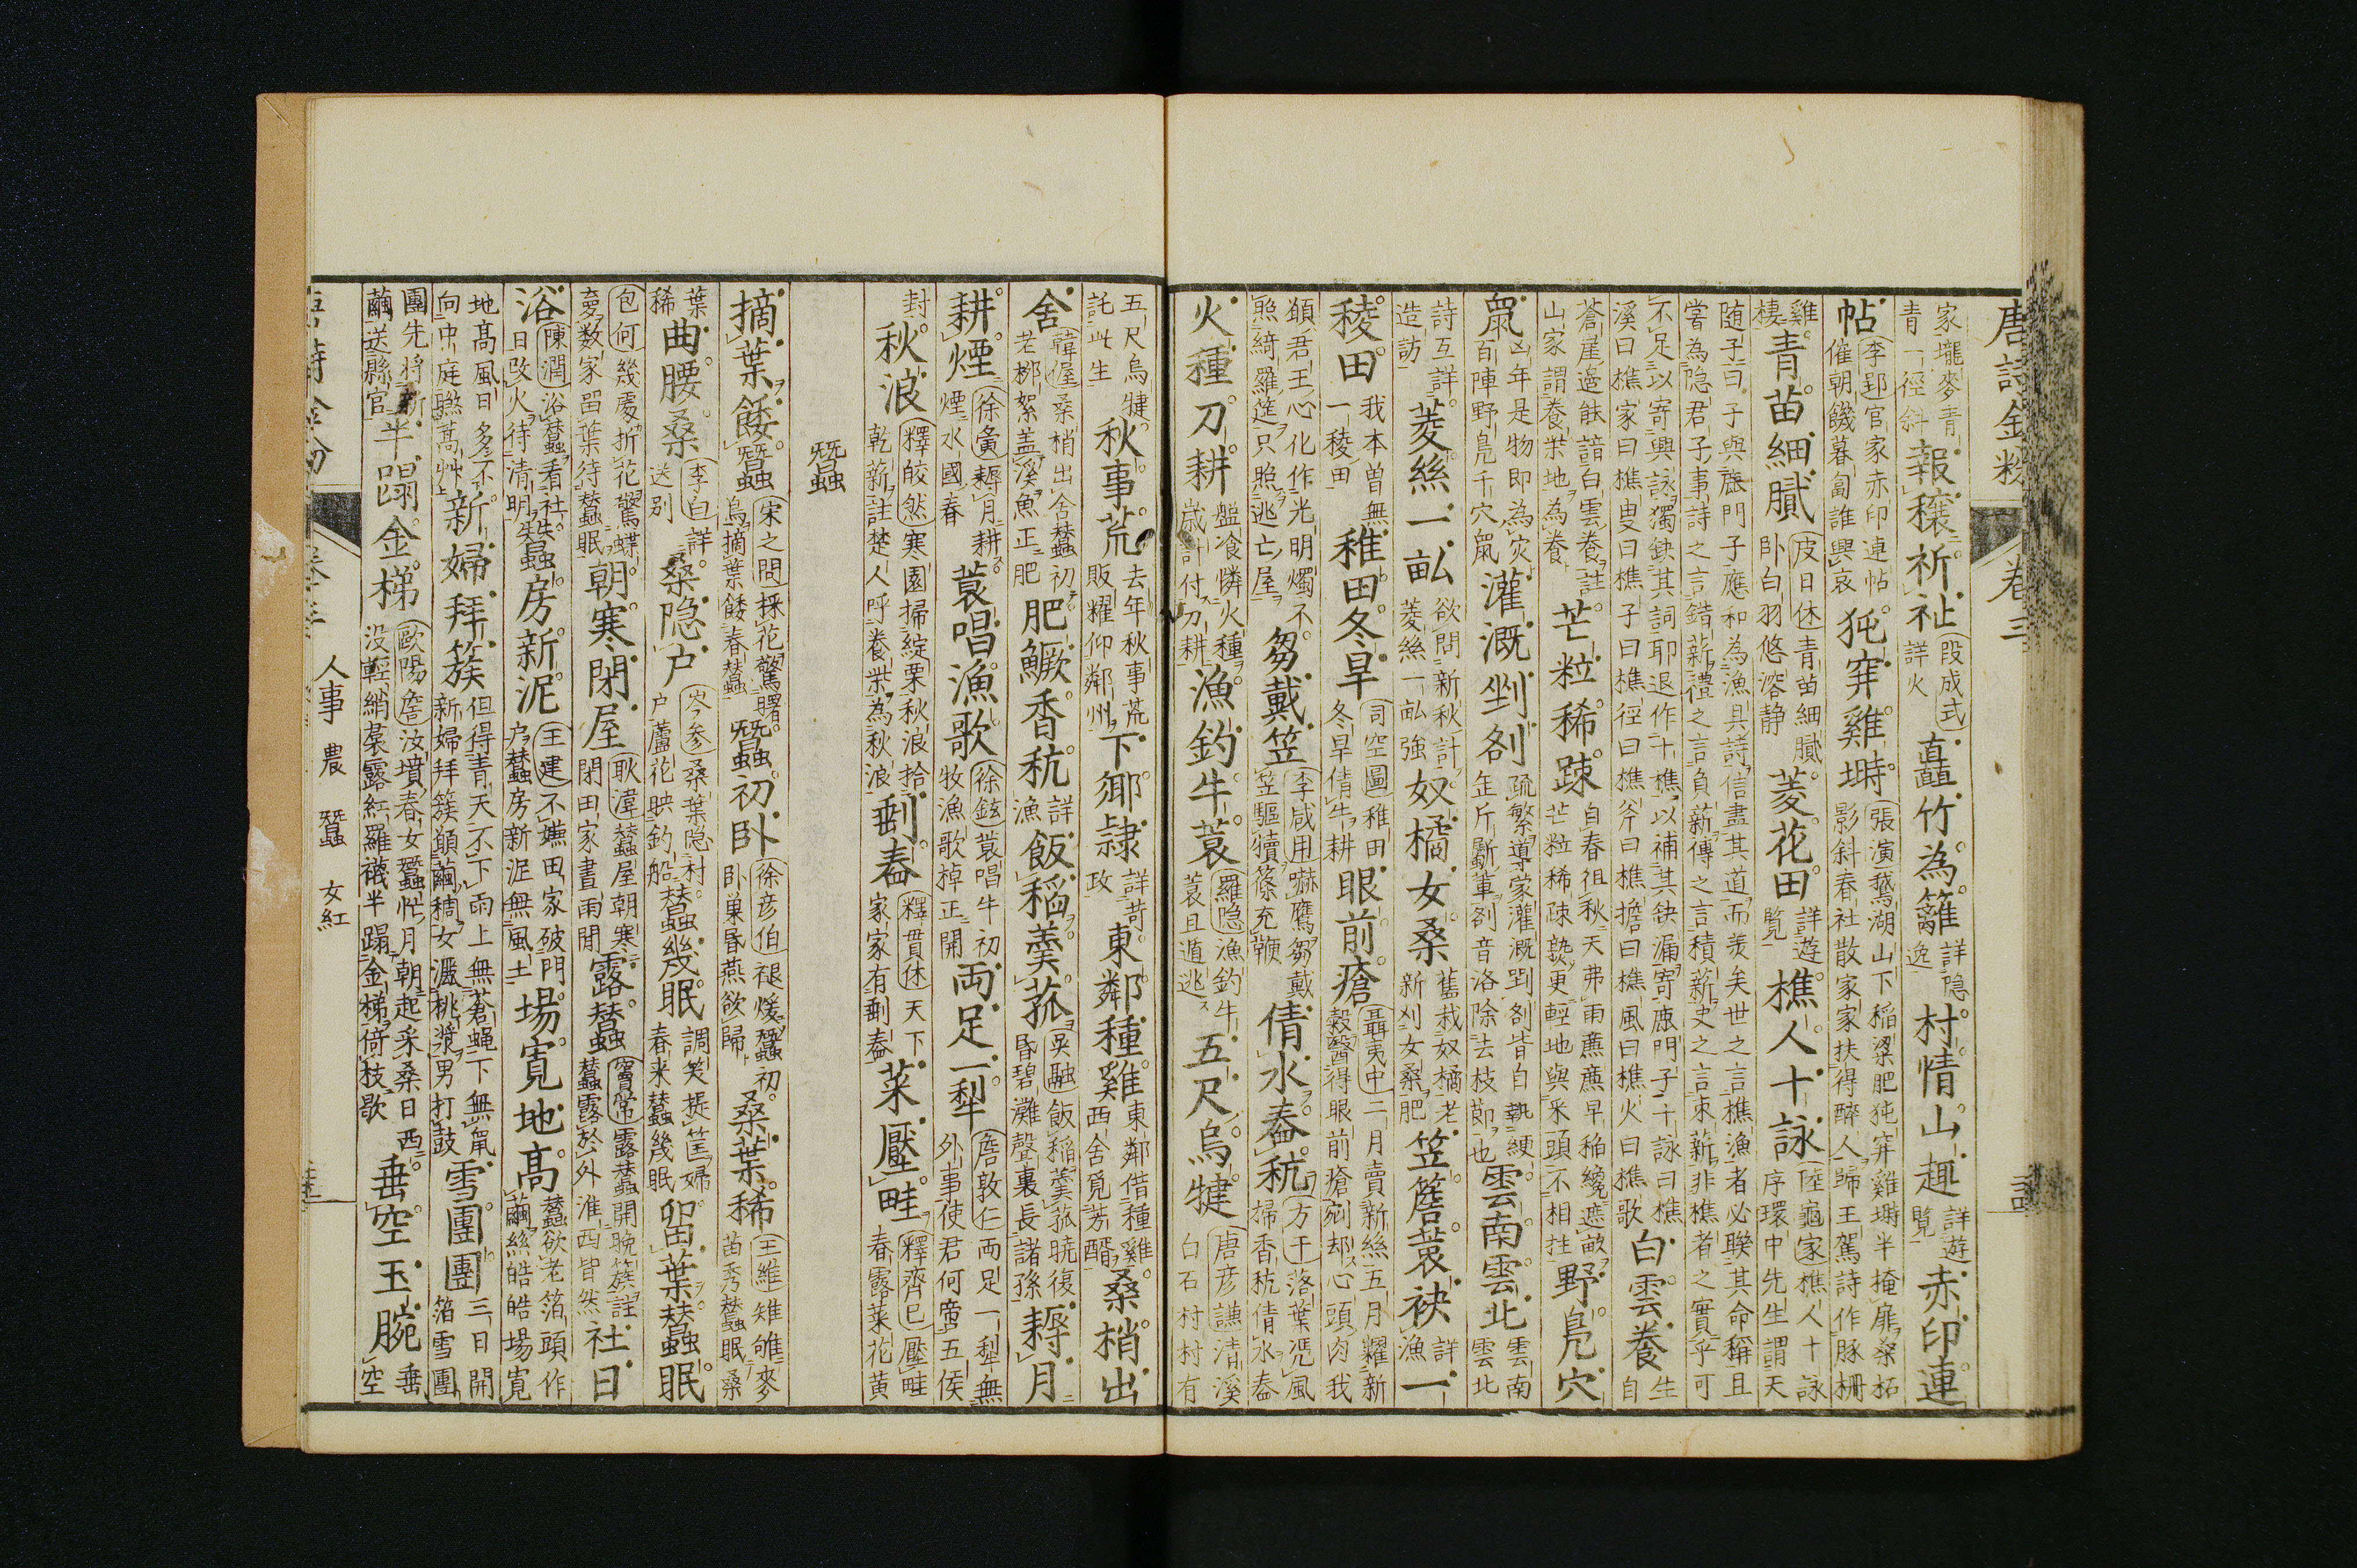 唐詩金粉 卷三
家壠麥青
青一徑斜
報穰祈祉
段成式
詳火
矗竹為籬
詳隠
逸
村情山趣
詳遊
覧
赤印連
帖
李郢官家赤印連帖
催朝饑暮匐誰興哀
㹠穽雞塒
張演鵞湖山下稲粱肥㹠穽雞塒半掩扉桑柘
影斜春社散家家扶得醉人歸王駕詩作豚柵
雞
棲
青苗細膩
皮日休青苗細膩
卧白羽悠溶静
菱花田
詳遊
覧
樵人十詠
陸龜家樵人十詠
序環中先生謂天
随子曰子與鹿門子應和為漁具詩信盡其道而羙矣世之言樵漁者必聫其命稱且
嘗為隠君子事詩之言錯薪禮之言負薪傳之言積薪史之言束薪非樵者之實乎可
不足以寄興詠獨缺其詞耶退作十樵以補其缺漏寄鹿門子十詠曰樵
溪曰樵家曰樵叟曰樵子曰樵徑曰樵斧曰樵擔曰樵風曰樵火曰樵歌
白雲養
生
自
蒼崖邉能諳白雲養註
山家謂養柴地為養
芒粒稀踈
自春徂秋天弗雨廉廉早稲纔遮畝
芒粒稀踈熟更輕地與禾頭不相拄
野鳧穴
鼠
凶年是物即為灾
百陣野鳧千穴鼠
灌溉剉剳
疏繁導蒙灌溉
雲南雲北
雲南
雲北
詩互詳
造訪
菱絲一畆
欲問新秋計
菱絲一畆強
奴橘女桑
舊栽奴橘老
新刈女桑肥
笠簷蓑袂
詳
漁
一
稜田
我本曽無
一稜田
稚田冬旱
司空圖稚田
冬旱倩牛耕
眼前瘡
聶夷中二月賣新絲五月糶新
穀醫得眼前瘡剜却心頭肉我
願君王心化作光明燭不
照綺羅筵只照逃亡屋
芻戴笠
李咸用嚇鷹芻戴
笠驅犢篠充鞭
倩水舂秔
方干落葉凴風
掃香秔倩水舂
火種刀耕
盤飡憐火種
歳計付刀耕
漁釣牛蓑
羅隐漁釣牛
蓑且遁逃
五尺烏犍
唐彦謙清溪
白石村村有
五尺烏犍
託此生
秋事荒
去年秋事荒
販糴仰鄰州
下鄉隷
詳苛
政
東鄰種雞
東鄰借種雞
西舍覓芳醑
桑梢出
舍
韓偓桑梢出舍蠶初
老栁絮盖溪魚正肥
肥鱖香秔
詳
漁
飯稲羮菰
吴融飯稲羮菰暁復
昏碧灘聲裏長諸孫
耨月
耕煙
徐夤耨月耕
煙水國春
蓑唱漁歌
徐鉉蓑唱牛初
牧漁歌棹正開
両足一犁
詹敦仁両足一犁無
外事使君何啻五侯
封
秋浪
釋皎然寒園掃綻栗秋浪拾
乾薪註楚人呼養柴為秋浪
剰舂
釋貫休天下
家家有剰舂
菜壓畦
釋齊己壓畦
春露菜花黄
蠶
摘葉餧蠶
宋之問採花驚曙
鳥摘葉餧春蠶
蠶初卧
徐彦伯褪煖蠶初
卧巣昏燕欲歸
桑葉稀
王維雉雊麥
苗秀蠶眠桑
葉
稀
曲腰桑
李白詳
送别
桑隠户
岑参桑葉隠村
户蘆花映釣船
蠶幾眠
調笑提筐婦
春来蠶幾眠
留葉蠶眠
包何幾處折花驚蝶
夣数家留葉待蠶眠
朝寒閉屋
耿湋蠶屋朝寒
閉田家晝雨閒
露蠶
竇常露蠶開晩簇註
蠶露於外淮西皆然
社日
浴
陳潤浴蠶看社
日改火待清明
蠶房新泥
王建不嫌田家破門
户蠶房新泥無風土
場寛地高
蠶欲老箔頭作
繭絲皓皓場寛
地高風日多不
向中庭㬠蒿艸
新婦拜簇
但得青天不下雨上無蒼蝿下無鼠
新婦拜簇願繭稠女灑桃漿男打皷
雪團團
三日開
箔雪團
團先将新
繭送縣官
半蹋金梯
歐陽詹汝墳春女蠶忙月朝起采桑日西
没輕綃裠露紅羅襪半蹋金梯倚枝歇
垂空玉腕
垂
空
人事 農 蠶 女紅